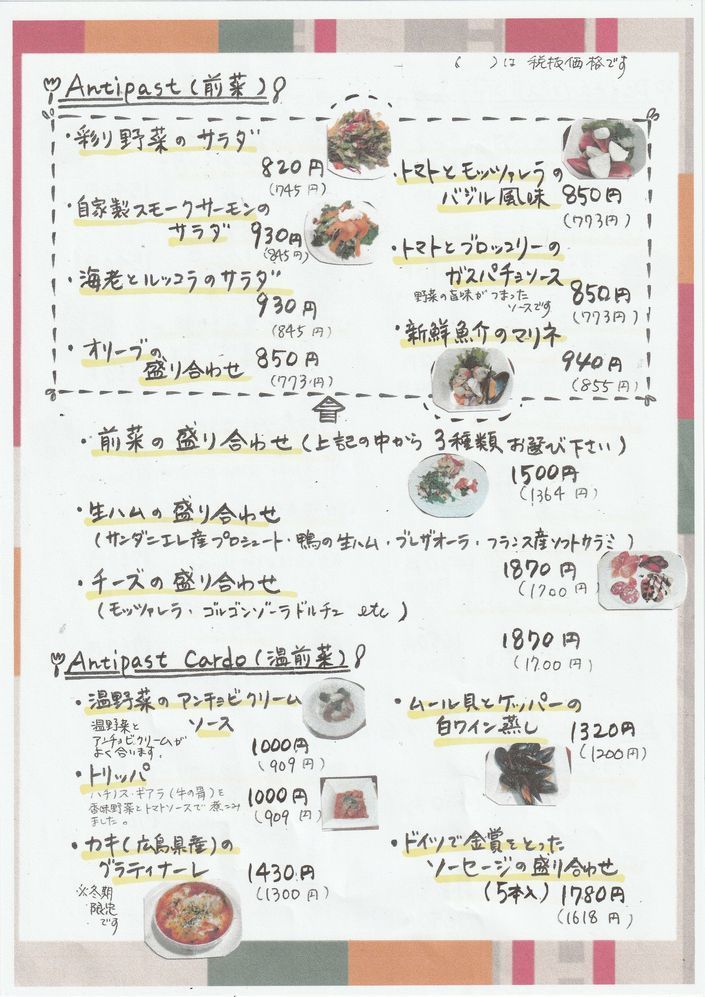 ( )は 税抜価格です
Antipast (前菜)
・彩り野菜の サラダ
820円
(745円)
・自家製スモークサーモンの
サラダ 930円
(845円)
・海老とルッコラのサラダ
930円
(845円)
・オリーブの
盛り合わせ 850円
(773円)
・トマトとモッツァレラの
バジル風味 850円
(773円)
・トマトとブロッコリーの
ガスパチョソース
野菜の旨味がつまった
ソースです
850円
(773円)
・新鮮魚介のマリネ
940円
(855円)
・前菜の盛り合わせ (上記の中から 3種類 お選び下さい)
1500円
(1364円)
・生ハムの盛り合わせ
(サンダニエレ産プロシュート・鴨の生ハム・ブレザオーラ・フランス産ソフトサラミ)
1870円
(1700円)
・チーズの盛り合わせ
(モッツァレラ・ゴルゴンゾーラドルチェ etc)
1870円
(1700円)
Antipast Cardo (温前菜)
・温野菜のアンチョビクリーム
ソース
温野菜と
アンチョビクリームが
よく合います。
1000円
(909円)
・トリッパ
ハチノス・ギアラ(牛の胃)を
香味野菜とトマトソースで煮こみ
ました。
1000円
(909円)
・カキ(広島県産)の
グラティナーレ 1430円
(1300円)
※冬期
限定
です
・ムール貝とケッパーの
白ワイン蒸し 1320円
(1200円)
・ドイツで金賞をとった
ソーセージの盛り合わせ
(5本入) 1780円
(1618円)